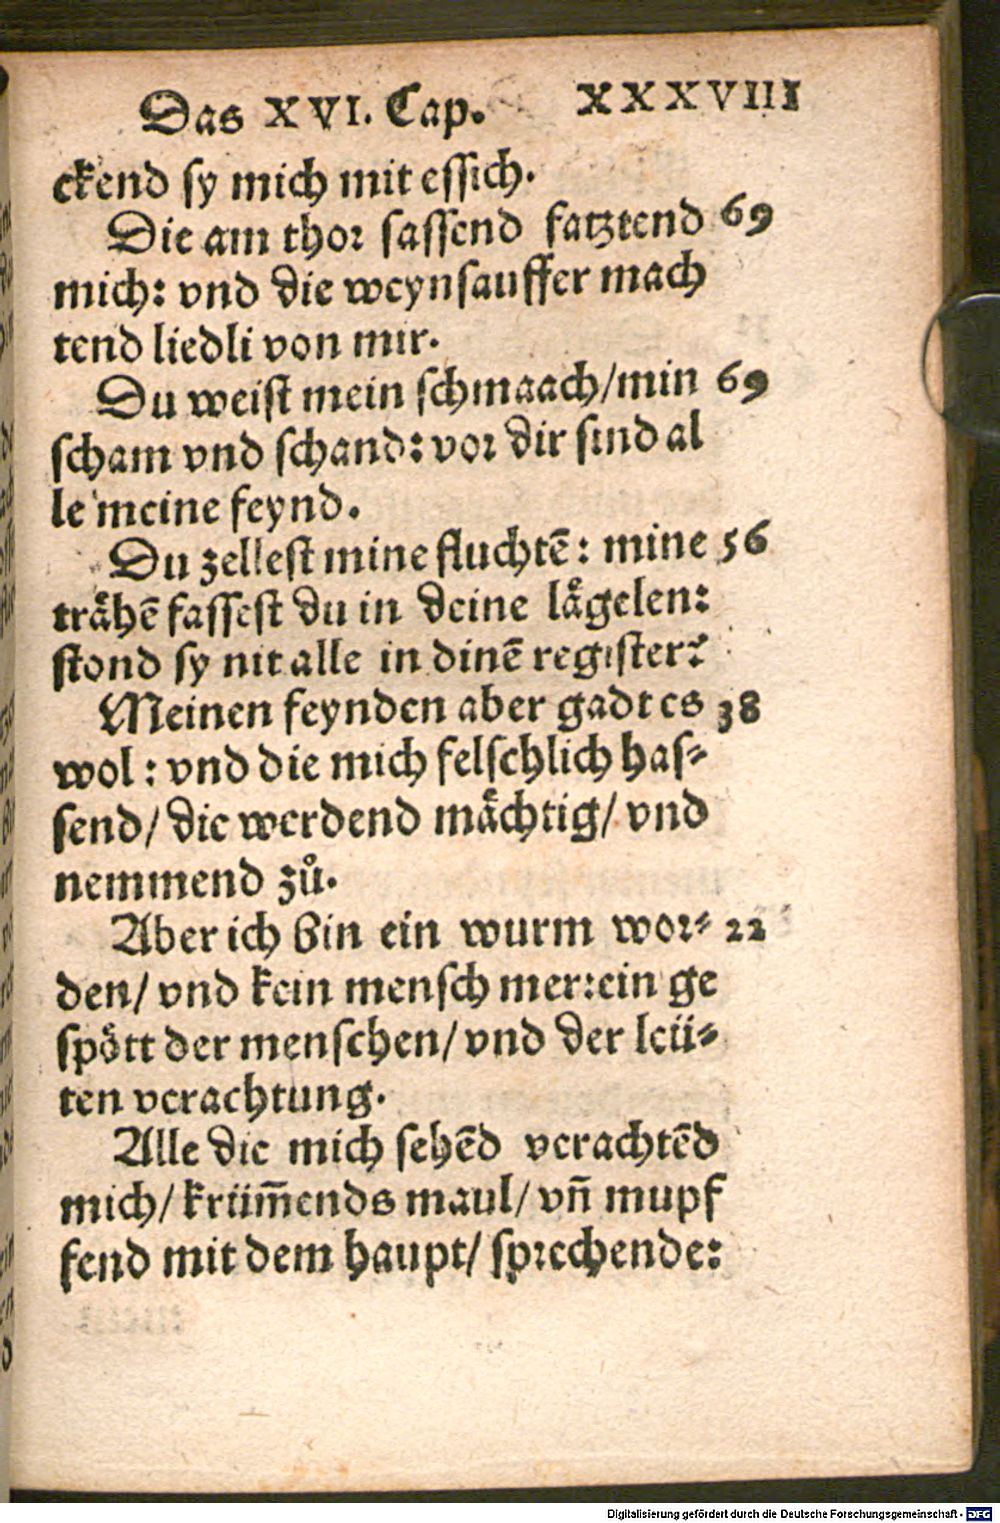 Das XVI. Cap. XXXVIII
ckend sy mich mit essich.
Die am thor sassend fatztend 69
mich: vnd die weynsauffer mach
tend liedli von mir.
Du weist mein schmaach/min 69
scham vnd schand: vor dir sind al
le meine feynd.
Du zellest mine fluchtẽ: mine 56
traͤhẽ fassest du in deine laͤgelen:
stond sy nit alle in dinẽ register?
Meinen feynden aber gadt es 38
wol: vnd die mich felschlich has⸗
send/ die werdend maͤchtig/ vnd
nemmend zů.
Aber ich bin ein wurm wor⸗ 22
den/ vnd kein mensch mer: ein ge
spoͤtt der menschen/ vnd der leü⸗
ten verachtung.
Alle die mich sehẽd verachtẽd
mich/ krüm̃ends maul/ vñ mupf
fend mit dem haupt/ sprechende:
Digitalisierung gefördert durch die Deutsche Forschungsgemeinschaft - DFG